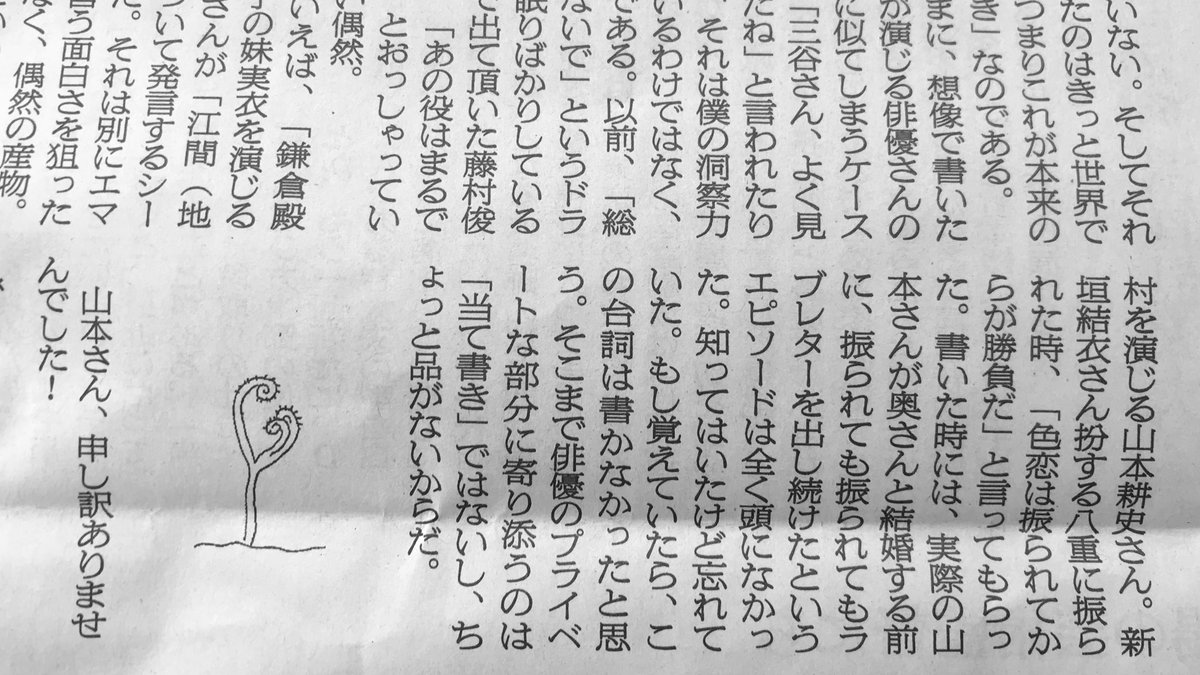 いない。そしてそれ
たのはきっと世界で
つまりこれが本来の
き」なのである。
まに、想像で書いた
が演じる俳優さんの
に似てしまうケース
「三谷さん、よく見
たね」と言われたり
、それは僕の洞察力
いるわけではなく、
である。以前、「総
ないで」というドラ
眠りばかりしている
で出て頂いた藤村俊
「あの役はまるで
とおっしゃってい
い偶然。
いえば、「鎌倉殿
の妹実衣を演じる
さんが「江間（地
ついて発言するシー
た。それは別にエマ
言う面白さを狙った
なく、偶然の産物。
村を演じる山本耕史さん。新
垣結衣さん扮する八重に振ら
れた時、「色恋は振られてか
らが勝負だ」と言ってもらっ
た。書いた時には、実際の山
本さんが奥さんと結婚する前
に、振られても振られてもラ
ブレターを出し続けたという
エピソードは全く頭になかっ
た。知ってはいたけど忘れて
いた。もし覚えていたら、こ
の台詞は書かなかったと思
う。そこまで俳優のプライベ
ートな部分に寄り添うのは
「当て書き」ではないし、ち
ょっと品がないからだ。
山本さん、申し訳ありませ
んでした！